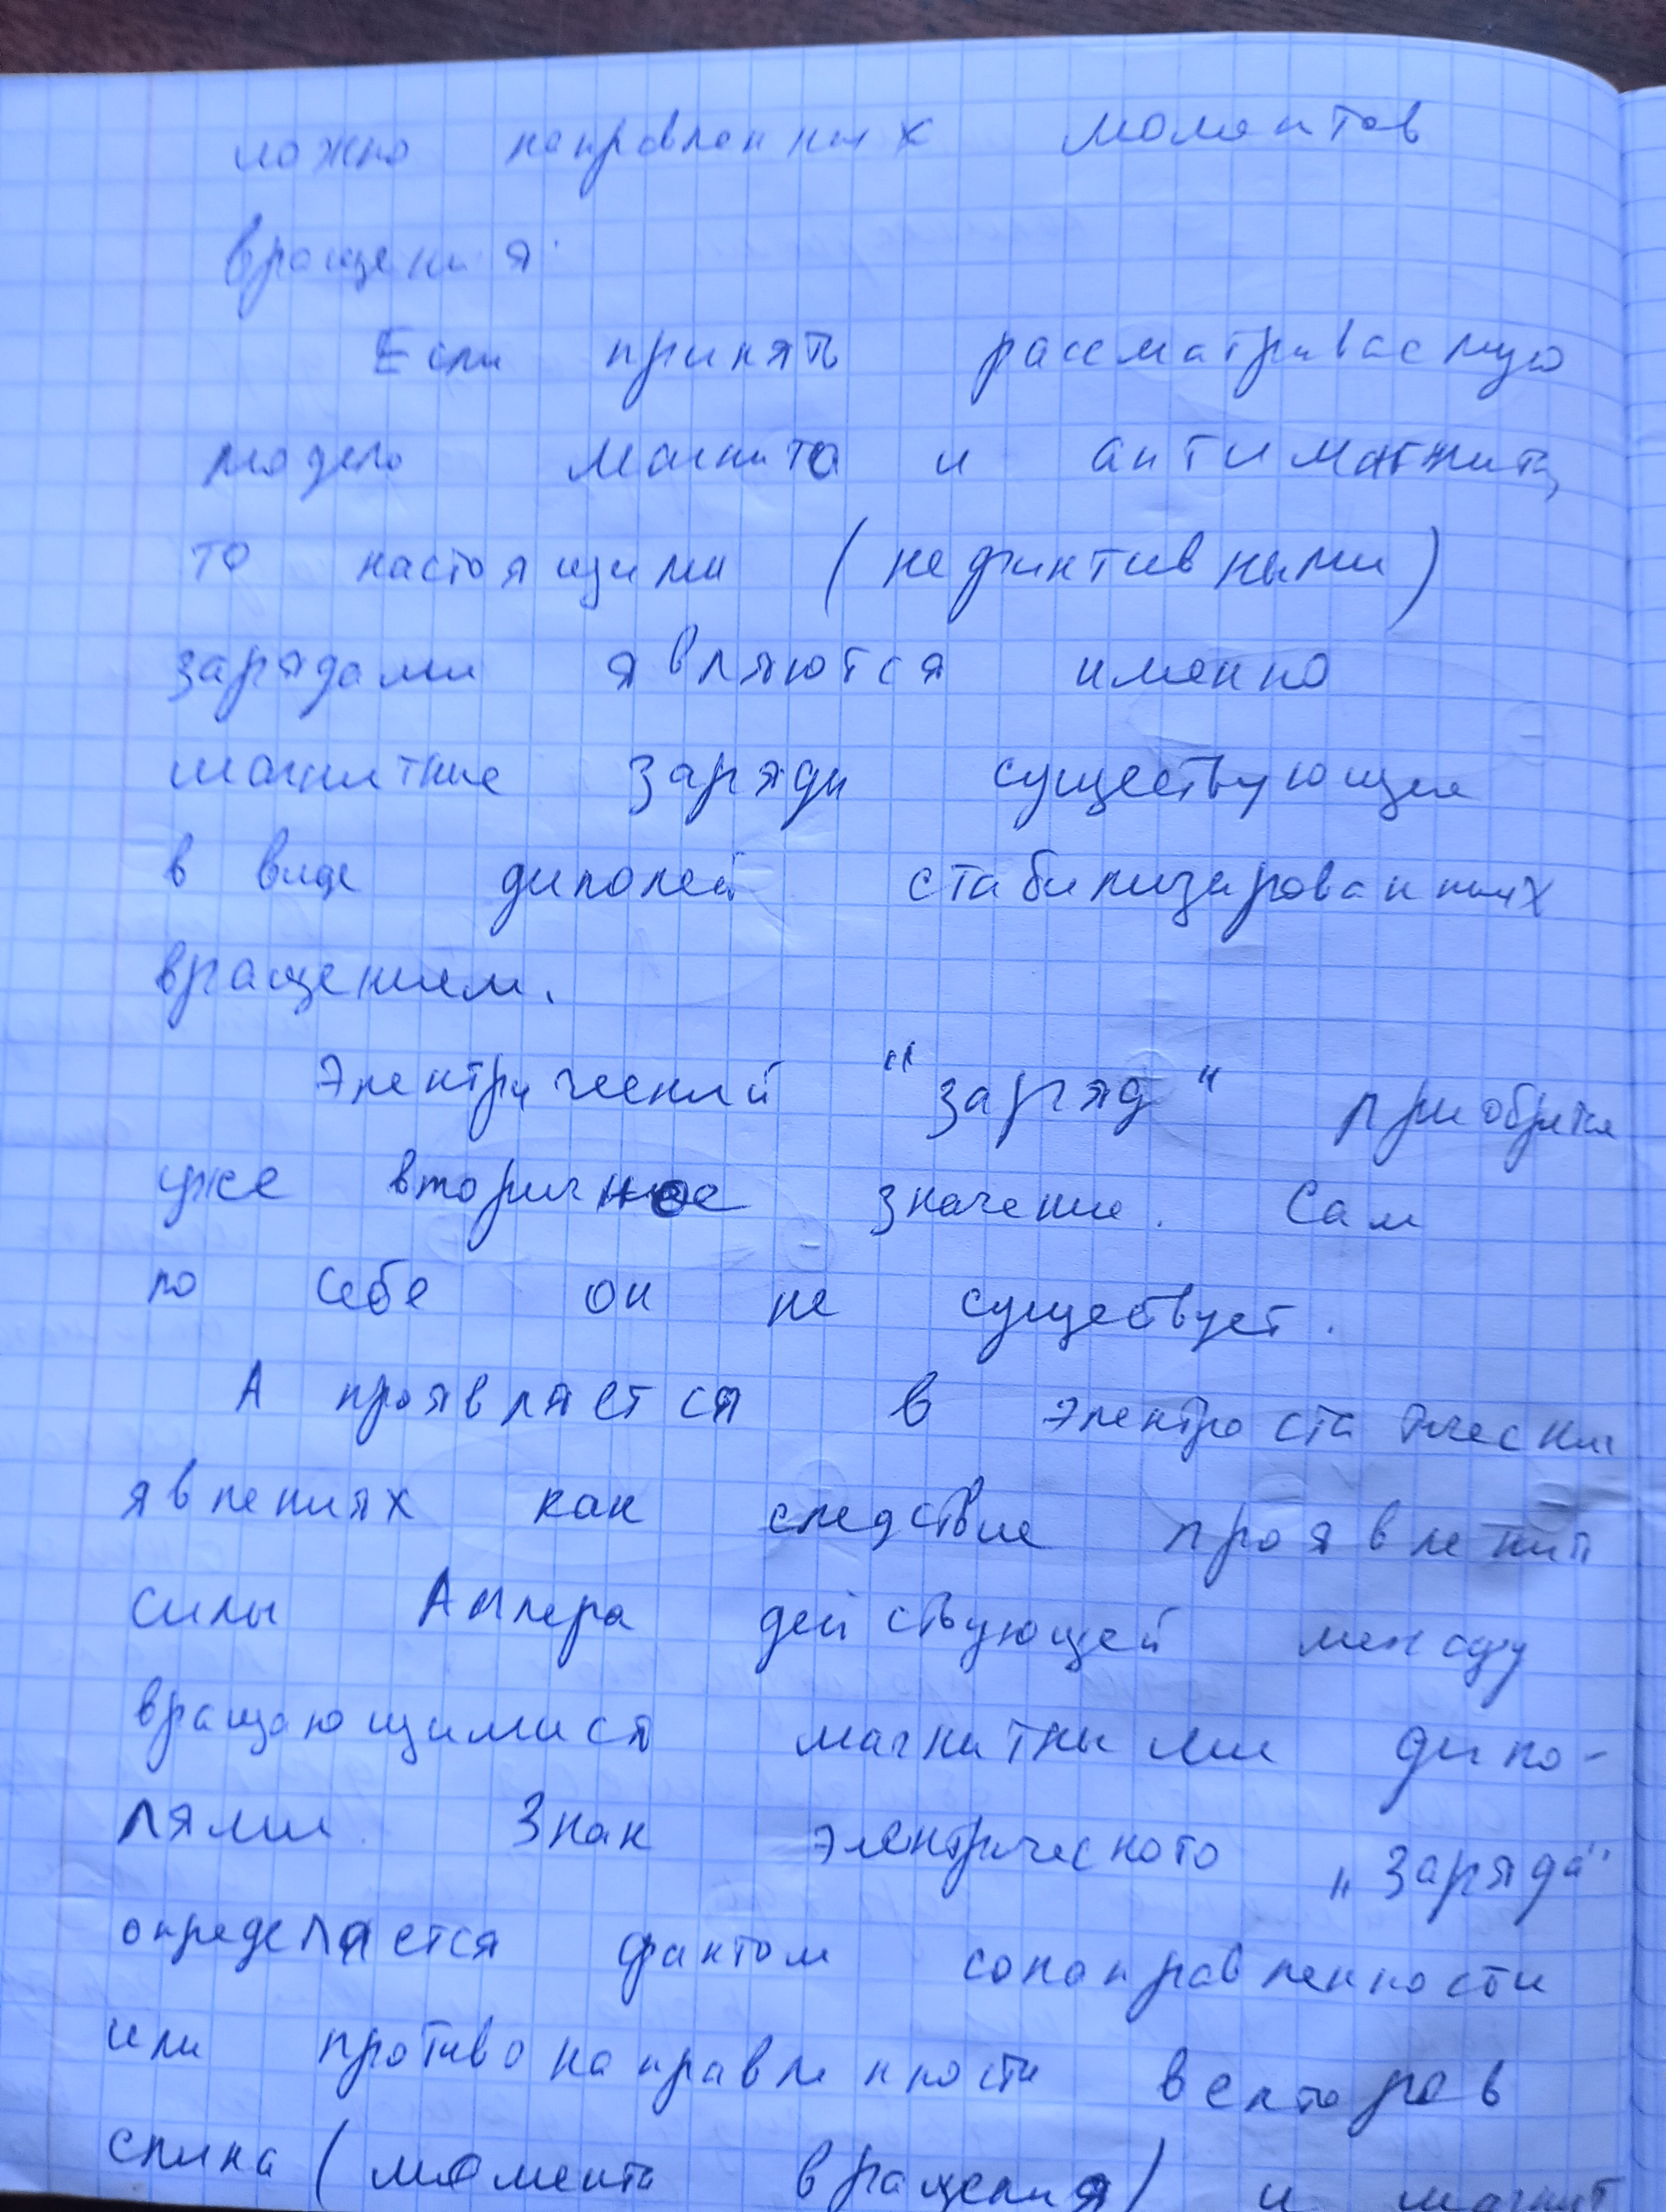 ложно направленных моментов
вращения.
Если принять рассматриваемую
модель магнита и антимагнита,
то настоящими (нефиктивными)
зарядами являются именно
магнитные заряды существующие
в виде диполей стабилизированных
вращением.
Электрический "заряд" приобретае
уже вторичное значение. Сам
по себе он не существует.
А проявляется в электростатических
явлениях как следствие проявлений
силы Ампера действующей между
вращающимися магнитными дипо-
лями. Знак электрического „заряда"
определяется фактом сонаправленности
или противонаправленности векторов
спина (момента вращения) и магнит